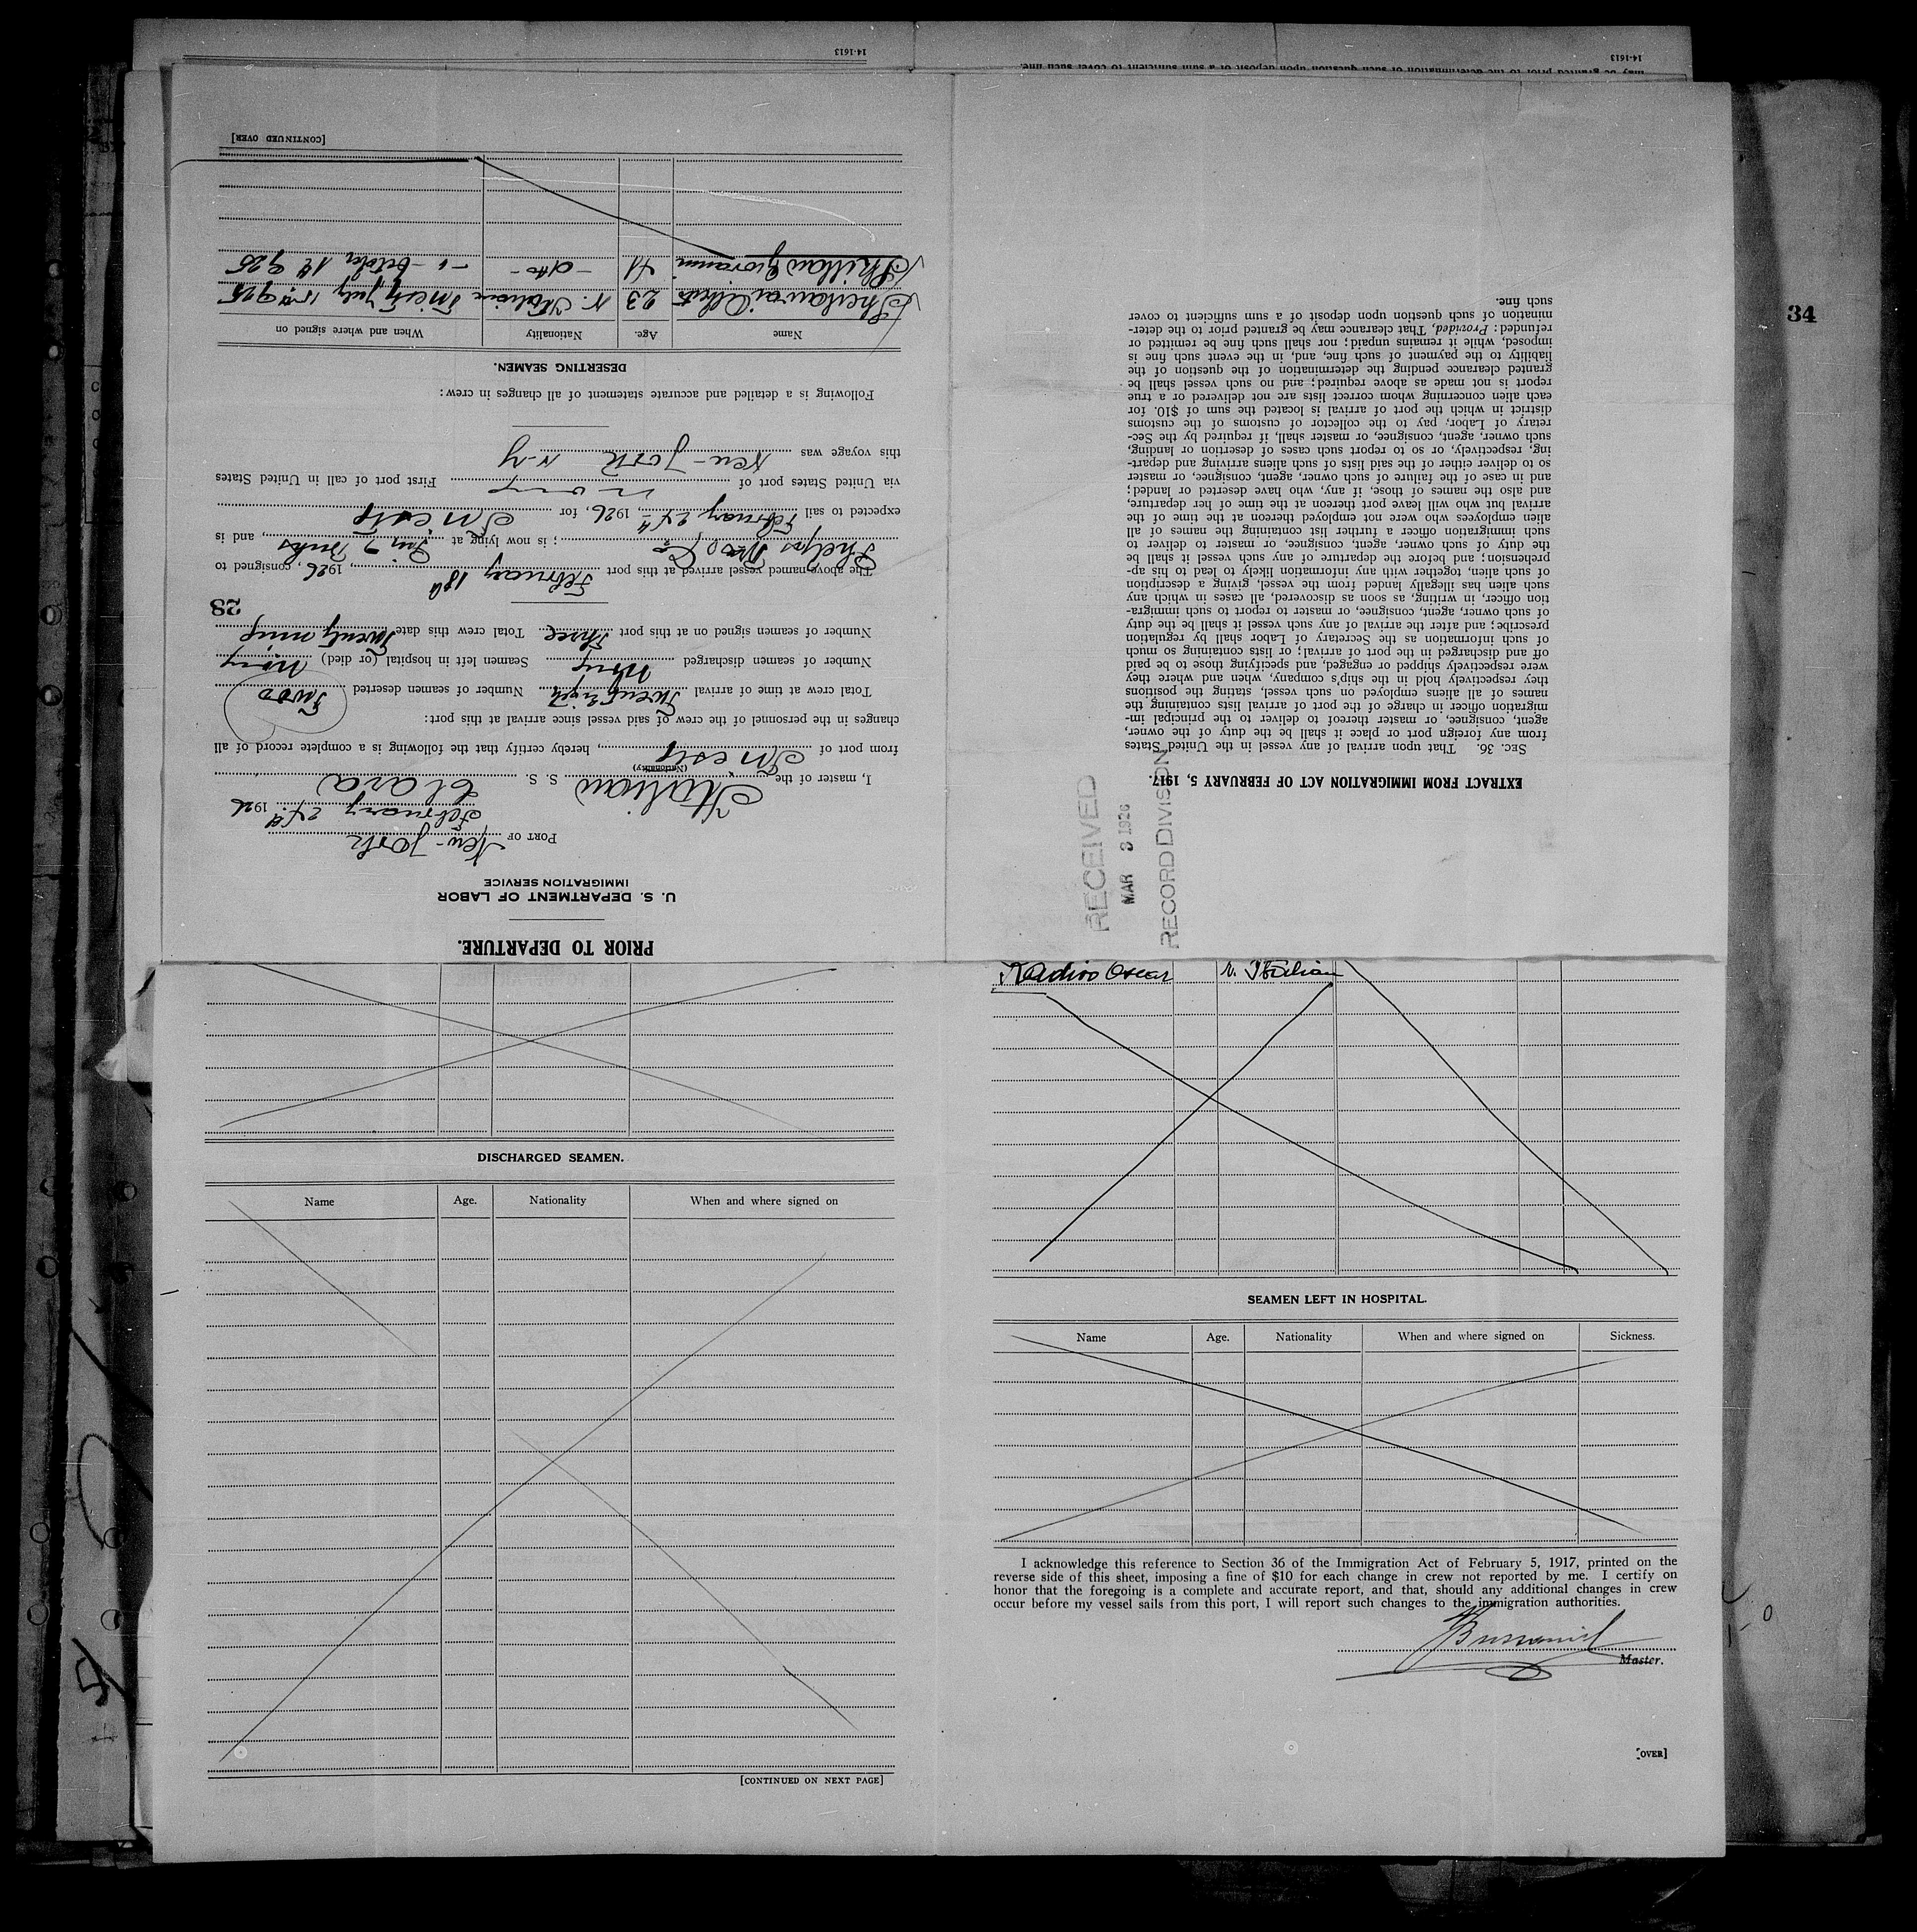 PRIOR TO DEPARTURE.
U. S. DEPARTMENT OF LABOR
IMMIGRATION SERVICE
PORT OF New-York
February 24th 1926
I, master of the Italian S. S. Clara
(Nationality)
from port of Trieste, hereby certify that the following is a complete record of all
changes in the personnel of the crew of said vessel since arrival at this port:
Total crew at time of arrival Number of seamen deserted
Number of seamen discharged Seamen left in hospital (or died)
Number of seamen signed on at this port Three Total crew this date
28
The above-named vessel arrived at this port February 18th, 1926, consigned to
Phelps Bros Co; is now lying at, and is
expected to sail February 24th, 1926, for Trieste
via United States port of First port of call in United States
this voyage was New-York N-Y
Following is a detailed and accurate statement of all changes in crew:
DESERTING SEAMEN.
Name Age. Nationality When and where signed on
23 Trieste July 925
Giovanni 41 October 925
[CONTINUED OVER]
EXTRACT FROM IMMIGRATION ACT OF FEBRUARY 5, 1917.
SEC. 36. That upon arrival of any vessel in the United States
from any foreign port or place it shall be the duty of the owner,
agent, consignee, or master thereof to deliver to the principal im-
migration officer in charge of the port of arrival lists containing the
names of all aliens employed on such vessel, stating the positions
they respectively hold in the ship's company, when and where they
were respectively shipped or engaged, and specifying those to be paid
off and discharged in the port of arrival; or lists containing so much
of such information as the Secretary of Labor shall by regulation
prescribe; and after the arrival of any such vessel it shall be the duty
of such owner, agent, consignee, or master to report to such immigra-
tion officer, in writing, as soon as discovered, all cases in which any
such alien has illegally landed from the vessel, giving a description
of such alien, together with any information likely to lead to his ap-
prehension; and before the departure of any such vessel it shall be
the duty of such owner, agent, consignee, or master to deliver to
such immigration officer a further list containing the names of all
alien employees who were not employed thereon at the time of the
arrival but who will leave port thereon at the time of her departure,
and also the names of those, if any, who have deserted or landed;
and in case of the failure of such owner, agent, consignee, or master
so to deliver either of the said lists of such aliens arriving and depart-
ing, respectively, or so to report such cases of desertion or landing,
such owner, agent, consignee, or master shall, if required by the Sec-
retary of Labor, pay to the collector of customs of the customs
district in which the port of arrival is located the sum of $10. for
each alien concerning whom correct lists are not delivered or a true
report is not made as above required; and no such vessel shall be
granted clearance pending the determination of the question of the
liability to the payment of such fine, and, in the event such fine is
imposed, while it remains unpaid; nor shall such fine be remitted or
refunded: Provided, That clearance may be granted prior to the deter-
mination of such question upon deposit of a sum sufficient to cover
such fine.
RECEIVED
MAR 3 1926
RECORD DIVISION
may be granted prior to the determination of such question upon deposit of a sum sufficient to cover such fine.
14-1613
14-1613
34
DISCHARGED SEAMEN.
Name Age. Nationality When and where signed on
[CONTINUED ON NEXT PAGE]
Oscar N. Italian
SEAMEN LEFT IN HOSPITAL.
Name Age. Nationality When and where signed on Sickness.
I acknowledge this reference to Section 36 of the Immigration Act of February 5, 1917, printed on the
reverse side of this sheet, imposing a fine of $10 for each change in crew not reported by me. I certify on
honor that the foregoing is a complete and accurate report, and that, should any additional changes in crew
occur before my vessel sails from this port, I will report such changes to the immigration authorities.
Master.
[OVER]